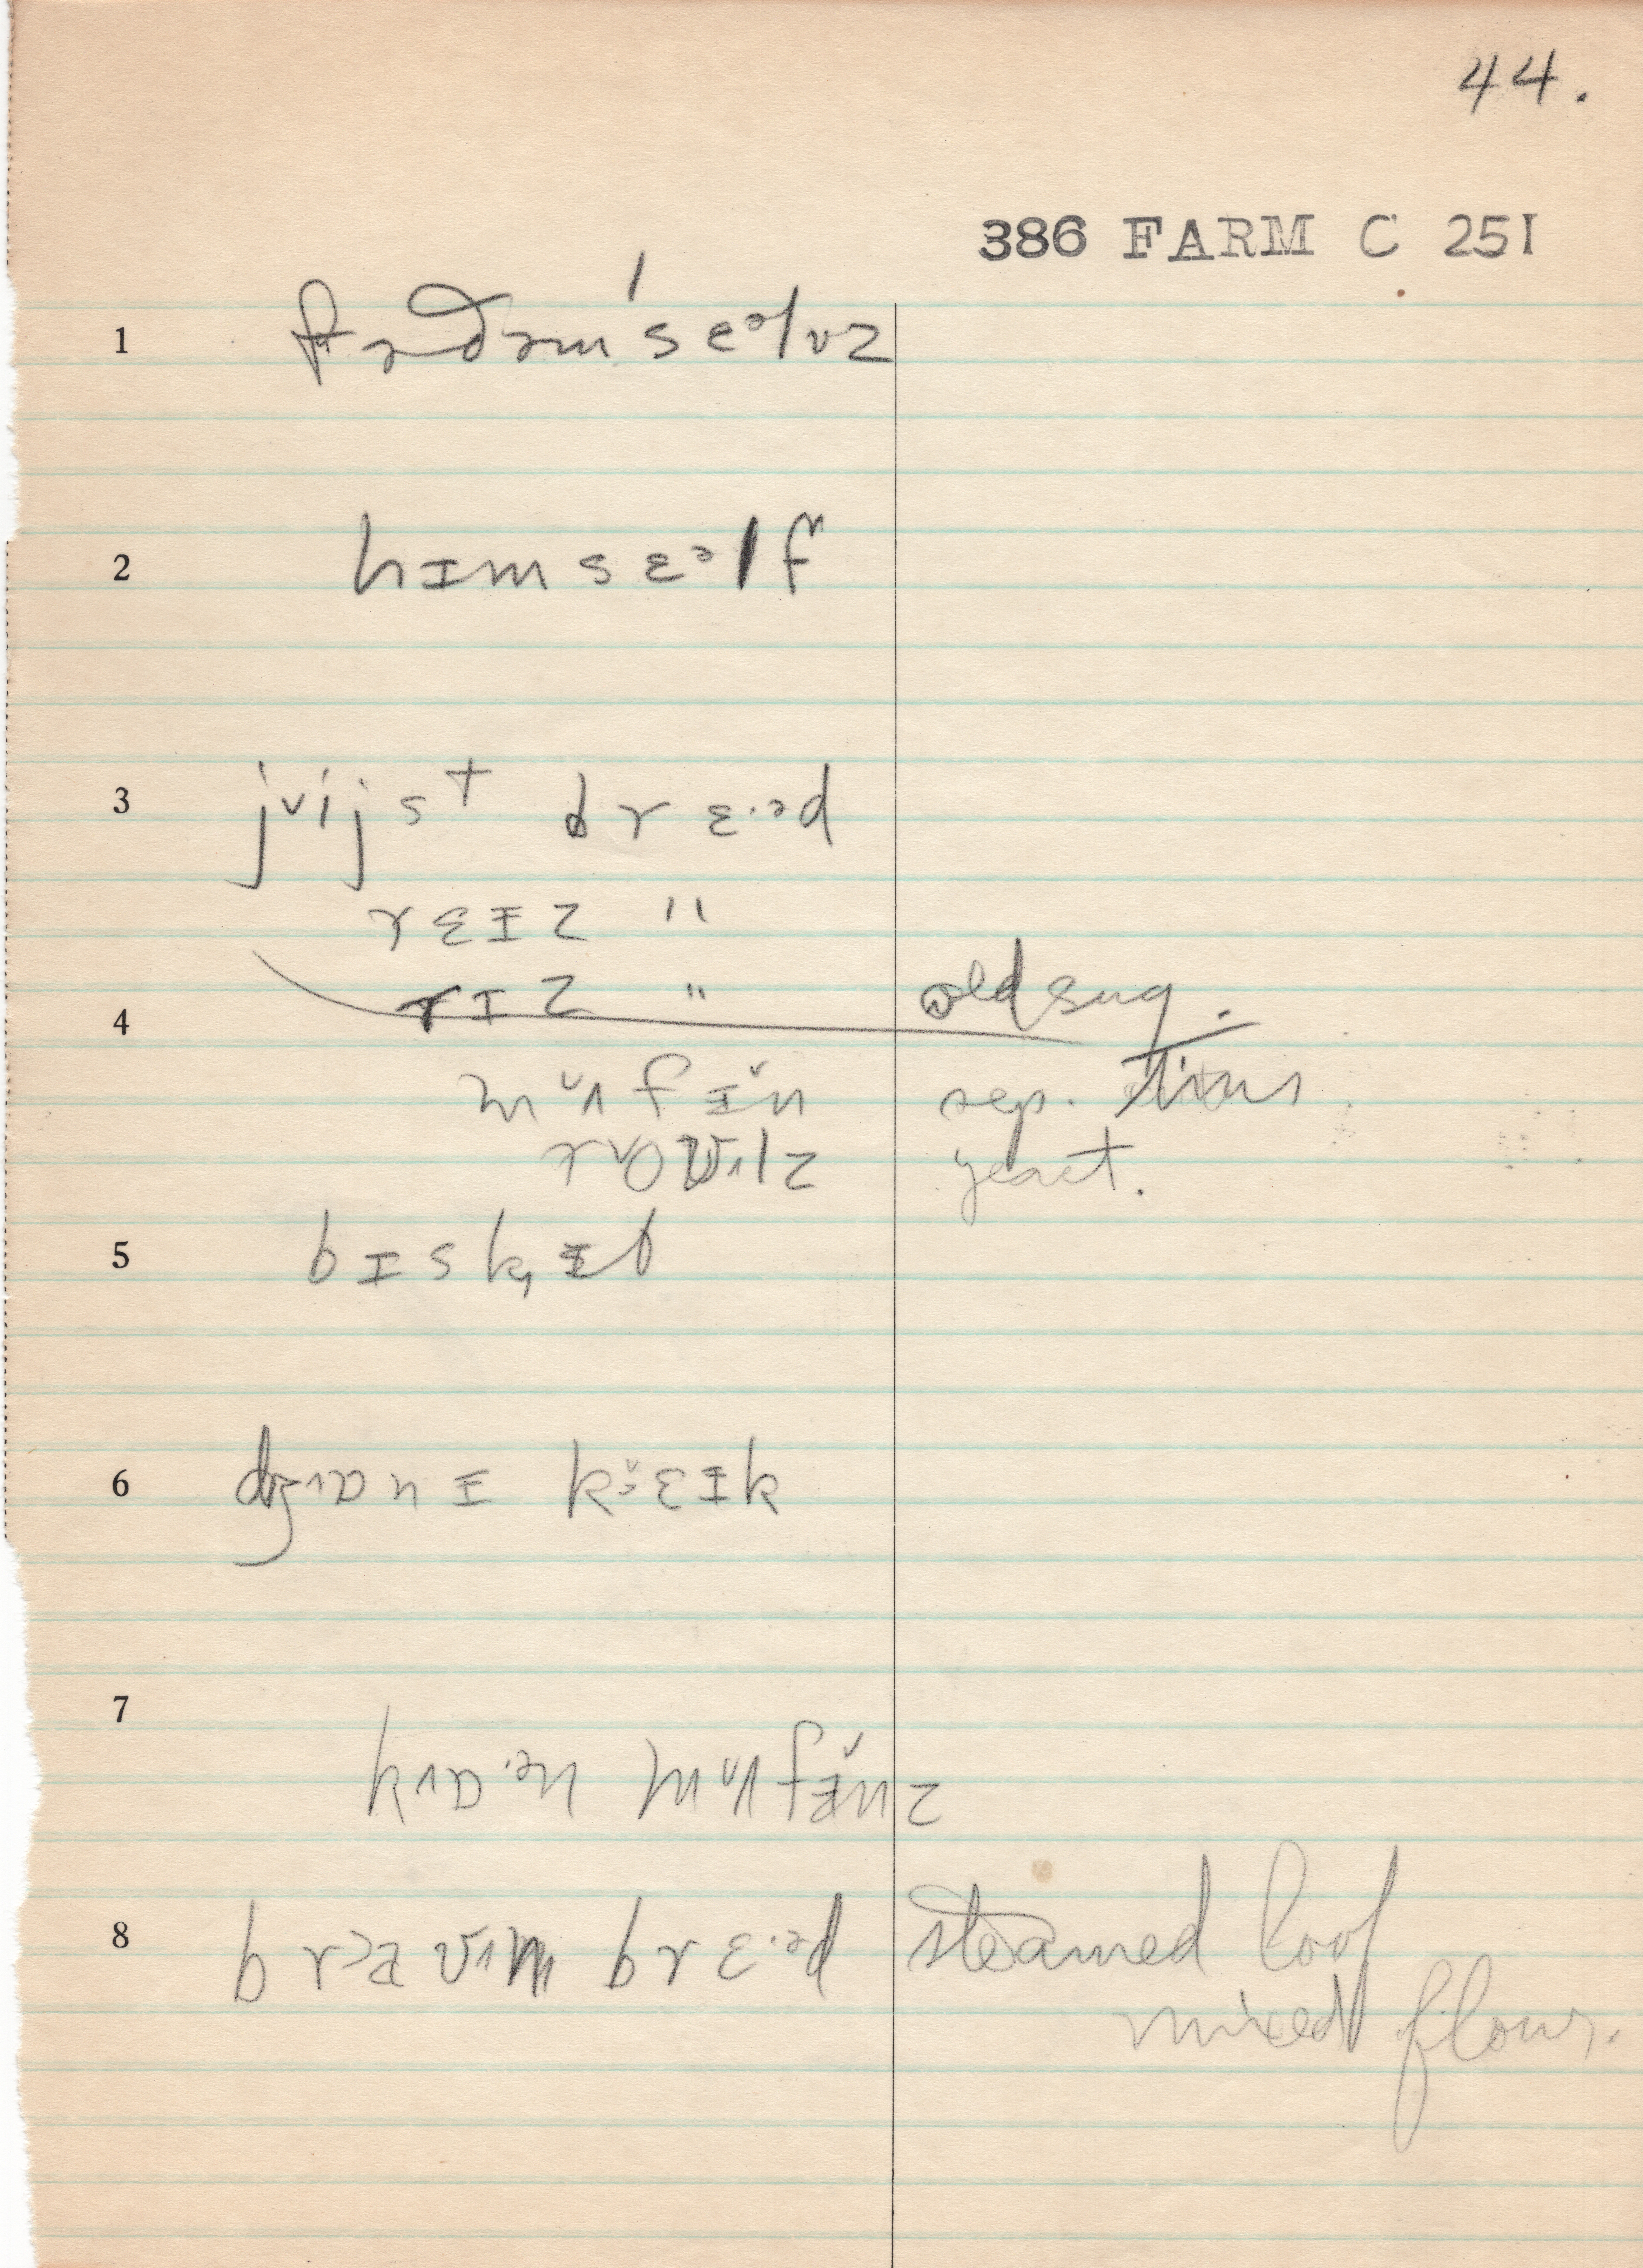 44.
386 FARM C 251
1 fɚðəm'sɛᵊlvz
2 hɪmsɛᵊlf
3 jᵛijsᵗ brɛ·ᵊd
rɛɪz "
4 rɪz " old sug.
mʌ̆fɪ̆n sep. tins
roʊlz yeast.
5 bɪskɪt
6 dʒɒnɪ kɛɪk
7 kɒ·ᵊn mʌ̆fɪ̆nz
8 braʊn brɛ·ᵊd steamed loaf
mixed flour.